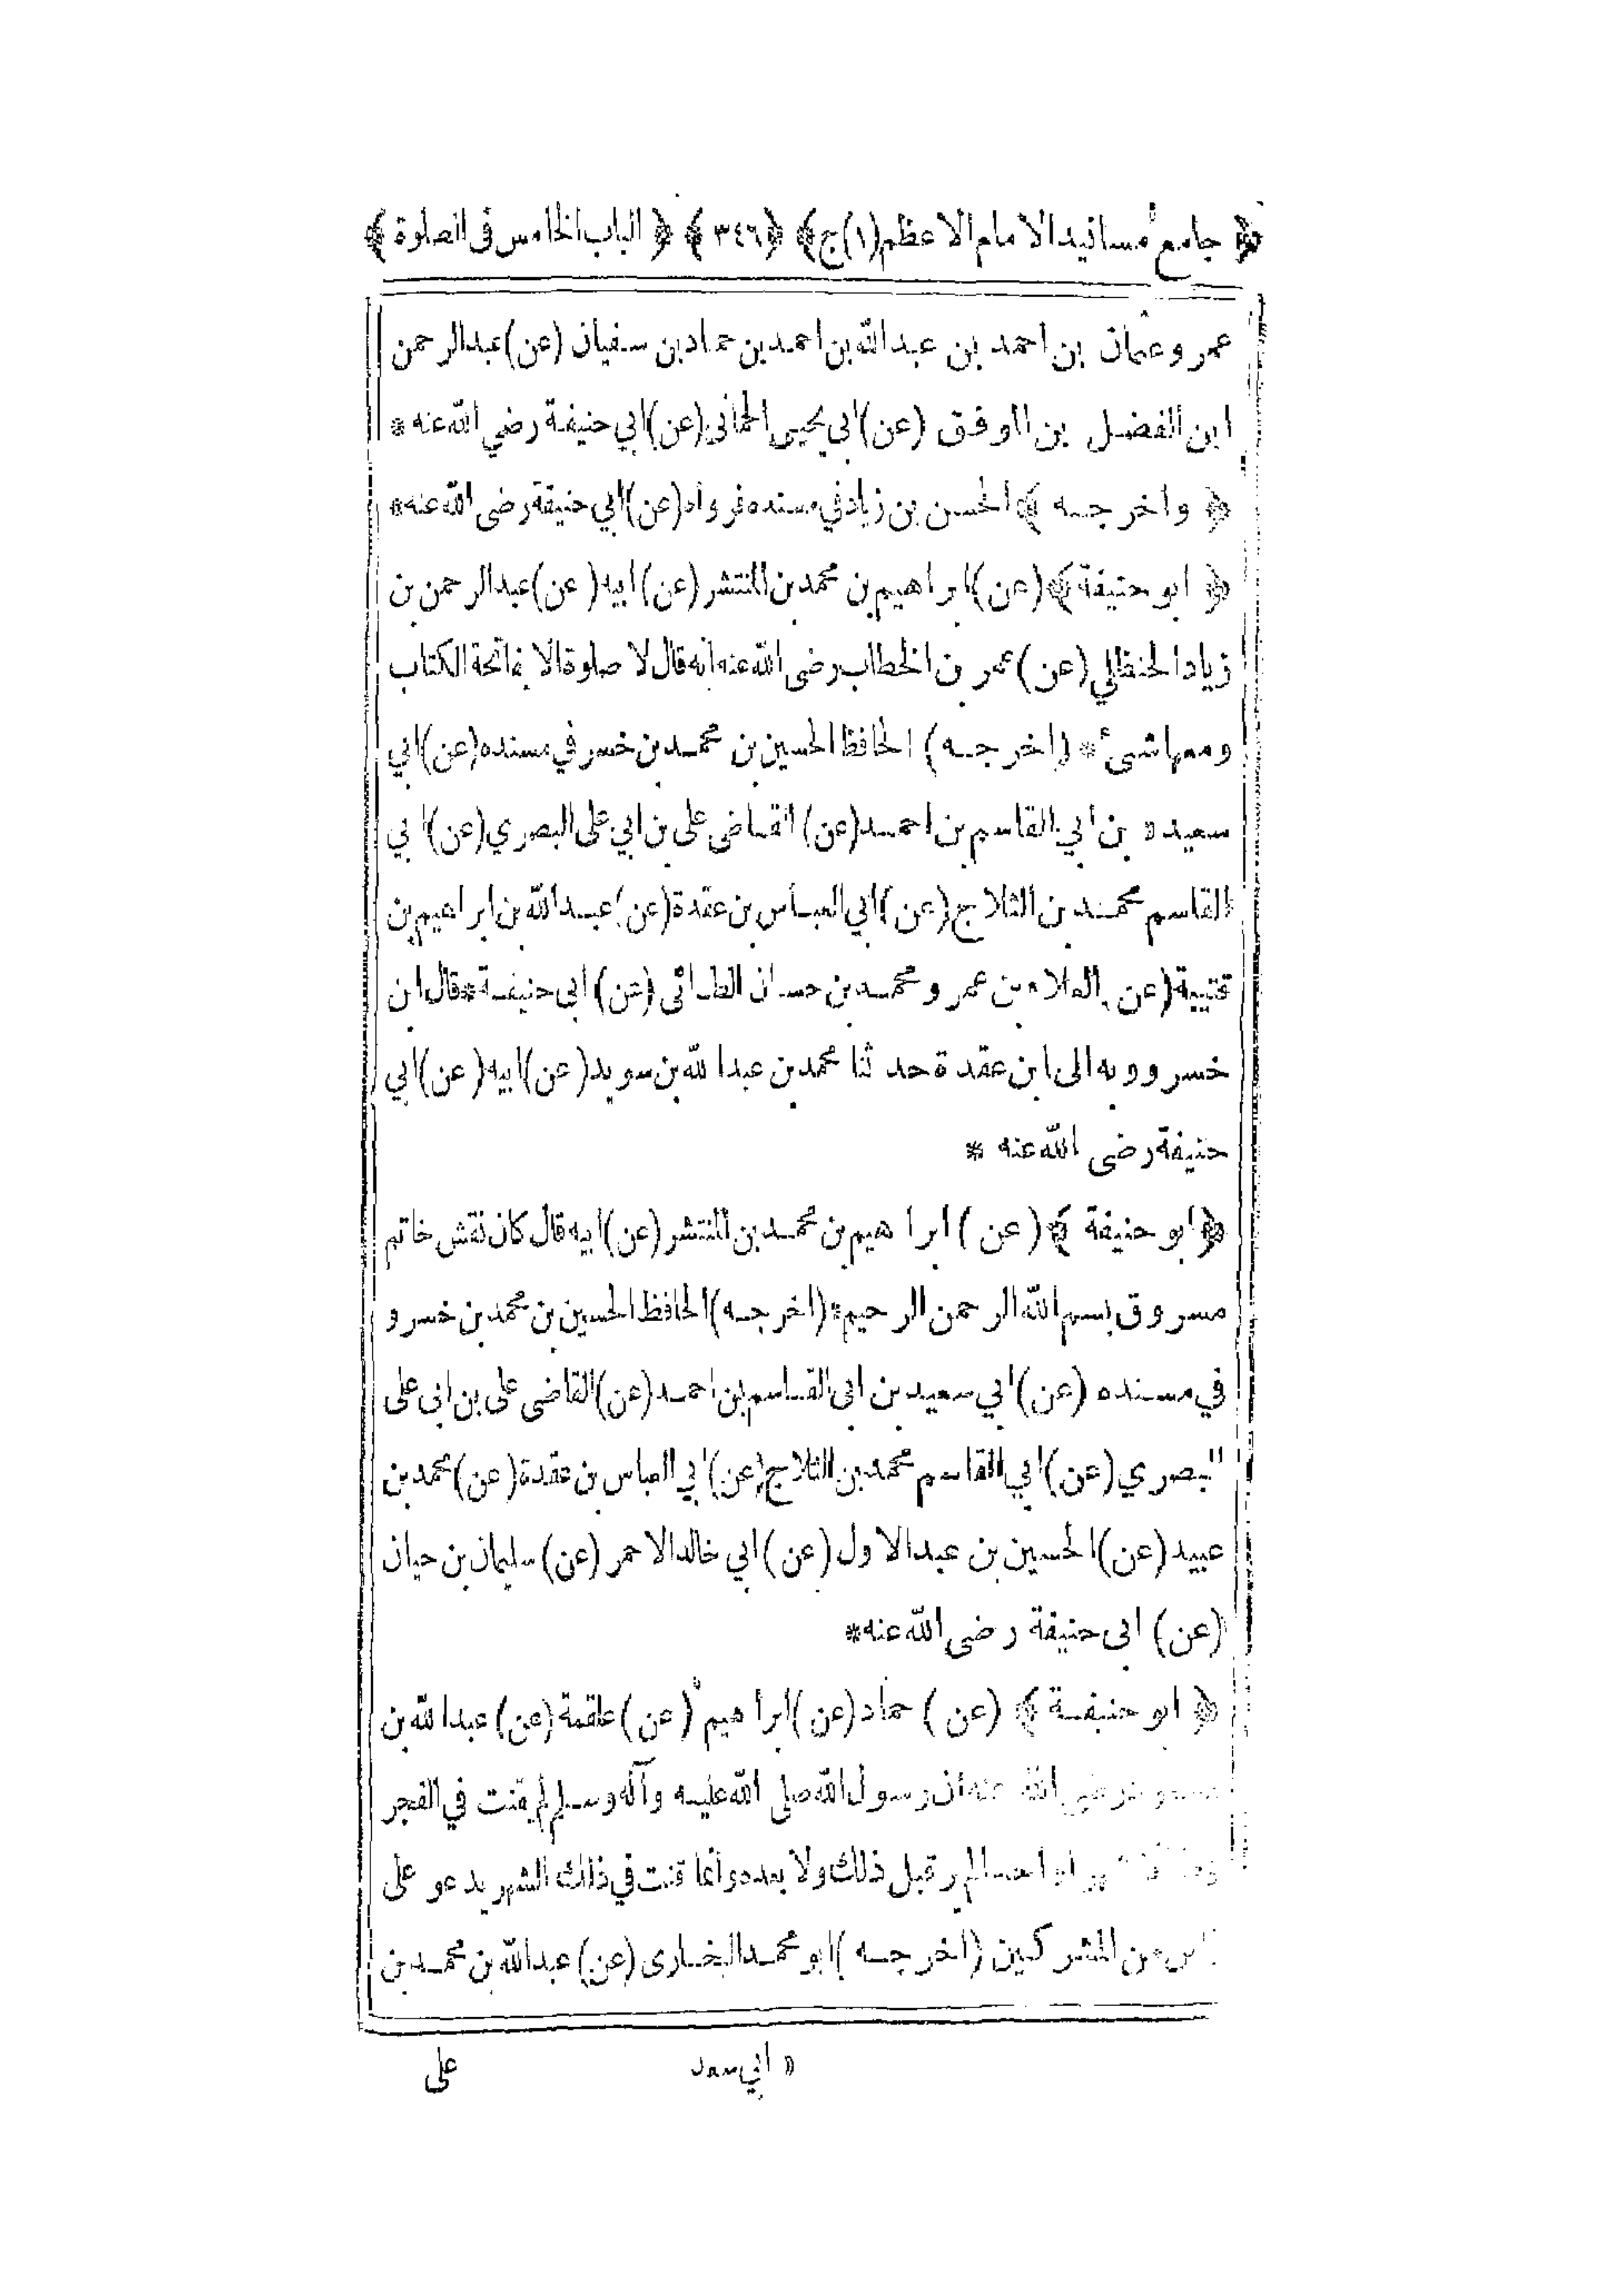 ﴿ جامع مسانيد الامام الاعظم(١)ج﴾ ﴿٣٤٦﴾ ﴿ الباب الخامس فى الصلوة ﴾
عمر وعثمان بن احمد بن عبدالله بن احمد بن حماد بن سفيان (عن)عبدالرحمن
ابن الفضل بن الموفق (عن)ابى يحيى الحمانى(عن)ابي حنيفة رضي الله عنه *
﴿ واخرجه ﴾ الحسن بن زياد في مسنده فرواه(عن)ابي حنيفة رضى الله عنه*
﴿ ابو حنيفة﴾(عن)ابراهيم بن محمد بن المنتشر (عن)ابيه(عن)عبدالرحمن بن
زياد الحنظلي(عن)عمر بن الخطاب رضى الله عنه انه قال لا صلوة الا بفاتحة الكتاب
ومعها شىء * (اخرجه) الحافظ الحسين بن محمد بن خسر في مسنده(عن)ابي
سعيد « بن ابي القاسم بن احمد(عن) القاضى على بن ابي على البصري(عن)ابي
القاسم محمد بن الثلاج(عن)ابي العباس بن عقدة(عن)عبدالله بن ابراهيم بن
قتيبة(عن) العلاء بن عمر ومحمد بن حسان الطائى (عن) ابى حنيفة*قال ابن
خسرو وبه الى ابن عقدة حدثنا محمد بن عبدالله بن سويد(عن)ابيه(عن)ابي
حنيفة رضى الله عنه *
﴿ابو حنيفة ﴾(عن ) ابراهيم بن محمد بن المنتشر (عن)ابيه قال كان نقش خاتم
مسروق بسم الله الرحمن الرحيم*(اخرجه)الحافظ الحسين بن محمد بن خسرو
في مسنده (عن)ابي سعيد بن ابى القاسم بن احمد(عن)القاضى على بن ابى على
البصري(عن)ابي القاسم محمد بن الثلاج(عن)ابي العباس بن عقدة(عن)محمد بن
عبيد(عن)الحسين بن عبدالاول(عن)ابي خالد الاحمر (عن) سليمان بن حيان
(عن) ابى حنيفة رضى الله عنه*
﴿ ابو حنيفة ﴾ (عن ) حماد(عن)ابراهيم (عن)علقمة(عن)عبدالله بن
مسعود رضى الله عنه ان رسول الله صلى الله عليه وآله وسلم لم يقنت في الفجر
شهرا واحدا لم ير قبل ذلك ولا بعده وانما قنت في ذلك الشهر يدعو على
ناس من المشركين (اخرجه )ابو محمد البخارى(عن)عبدالله بن محمد بن
« ابي سعد
على